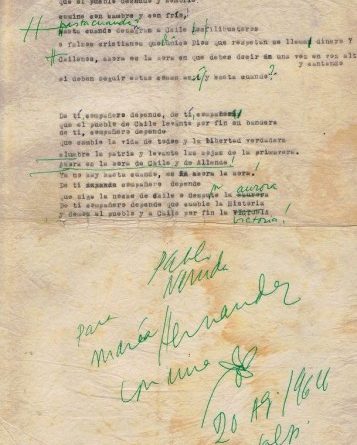 que el pueblo
camine con hambre y con frío,
hasta cuando?
hasta cuando desangran a Chile los filibusteros
o falsos cristianos que tienen Dios que respetan se llama dinero y
chilenos, ahora es la hora en que debes decir en una voz con alt
y cantando
si deben seguir estas cosas así y hasta cuando?.
De ti, compañero depende, de ti, compañero
que el pueblo de Chile levante por fin su bandera
de ti, compañero depende
que cambie la vida de todos y la libertad verdadera
alumbre la patria y levante las aguas de la primavera.
Ahora es la hora de Chile y de Allende!
Ya no hay hasta cuando, es ahora la hora.
De ti depende compañero depende
aurora
que siga la noche de Chile o despunte la
De ti compañero depende que cambie la Historia
y demos al pueblo y a Chile por fin la VICTORIA
Victoria!
Pablo
Neruda
para
María Hernandez
con una
20 Ag. 1964